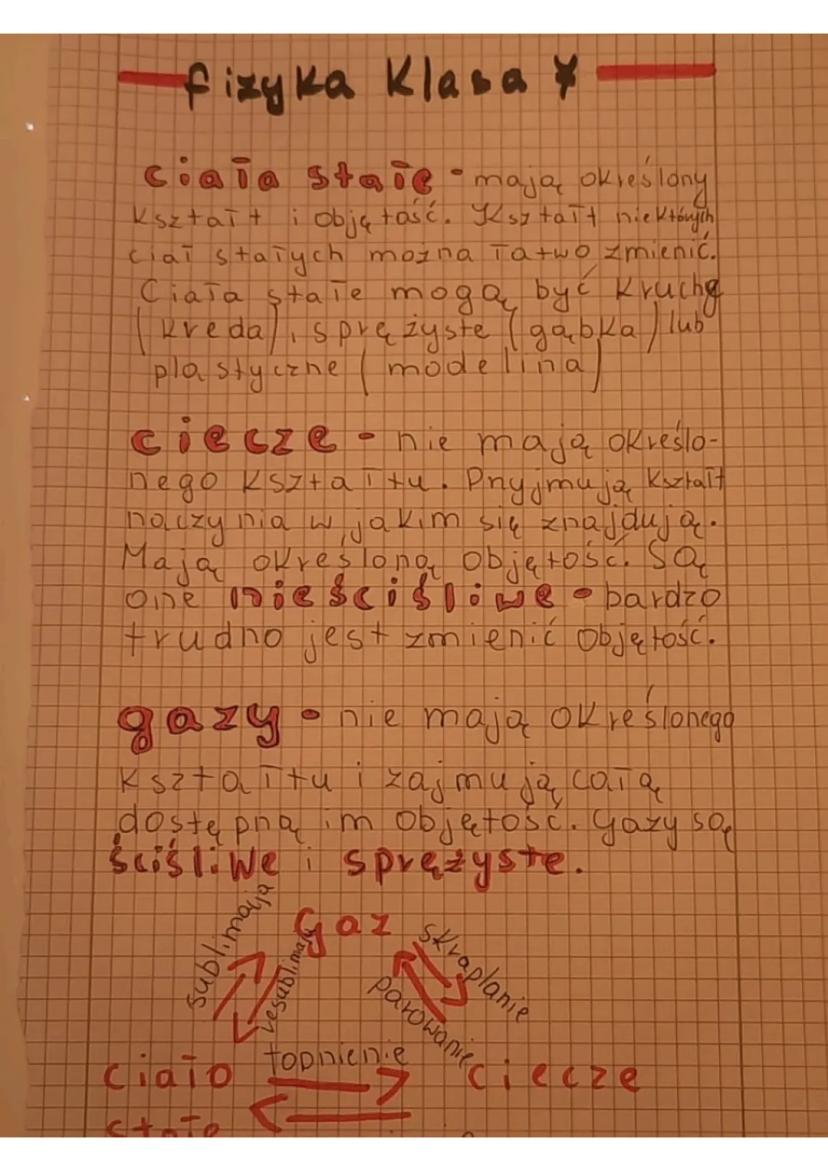 fizyka Klasa 7
ciała stałe - mają określony
kształt i objętość. Kształt niektórych
ciał stałych można łatwo zmienić.
Ciała stałe mogą być kruche
(kreda), sprężyste (gąbka) lub
plastyczne (modelina)
ciecze - nie mają określo-
nego kształtu. Przyjmują kształt
naczynia w jakim się znajdują.
Mają określoną objętość. Są
one nieściśliwe - bardzo
trudno jest zmienić objętość.
gazy - nie mają określonego
kształtu i zajmują całą
dostępną im objętość. Gazy są
ściśliwe i sprężyste.
Gaz
sublimaja
resublimaja
skraplanie
parowanie
ciało topnienie ciecze
stałe